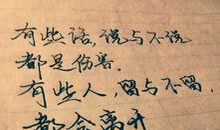 有些话,说与不说
都是伤害.
有些人,留与不留,
都会离开